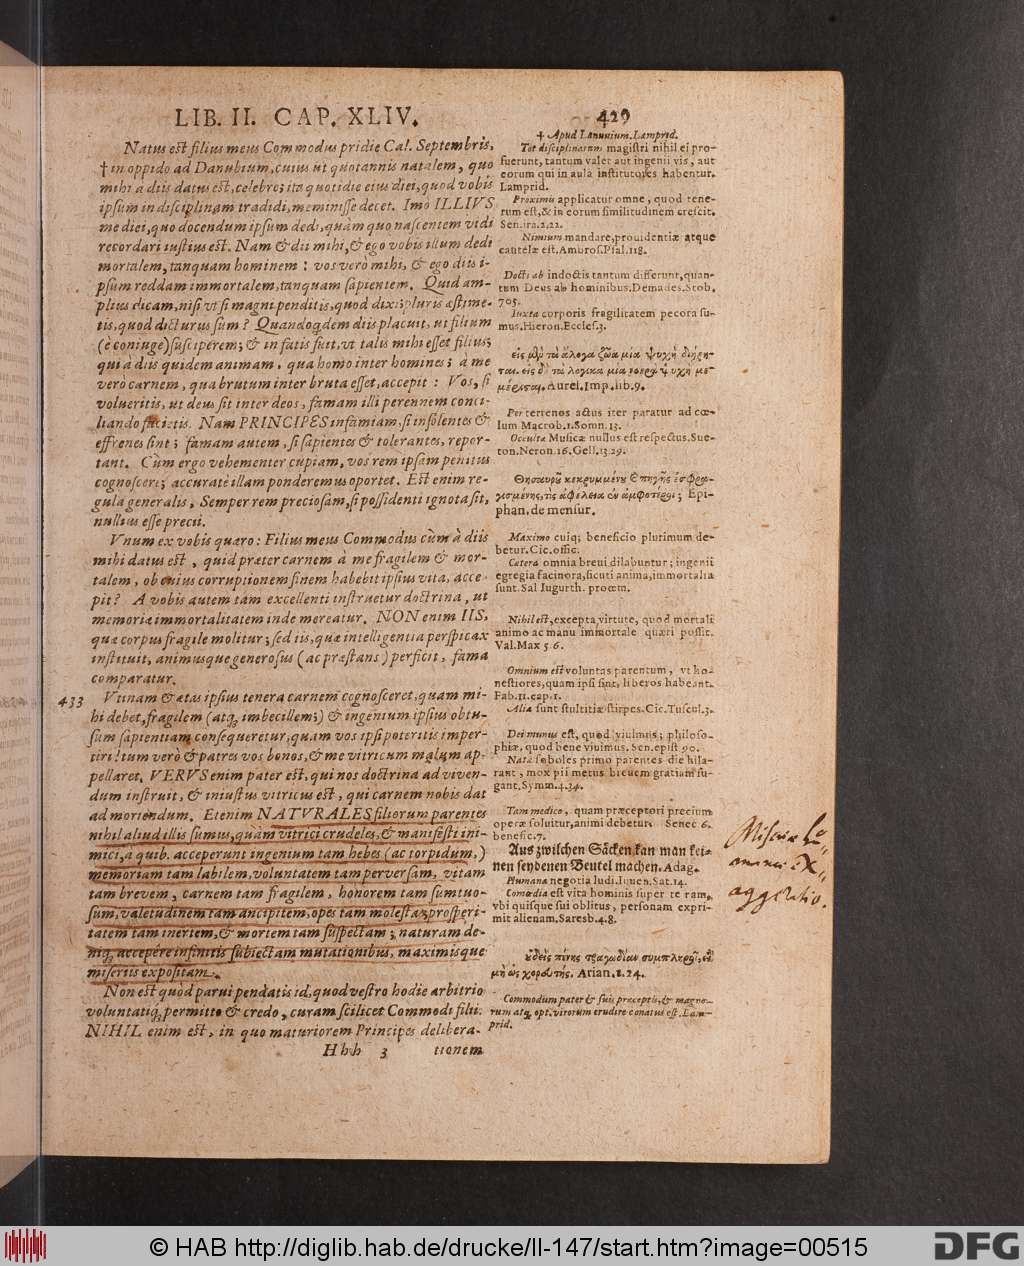 LIB. II. CAP. XLIV. 429
Natus est filius meus Commodus pridie Cal. Septembris,
† in oppido ad Danubium, cuius ut quotannis natalem, quo
mihi à diis datus est, celebro; ita quotidie eius diei, quod vobis
ipsum in disciplinam tradidi, meminisse decet. Imò ILLIVS
me diei, quo docendum ipsum dedi, quàm quo nascentem vidi
recordari iustius est. Nam & dii mihi, & ego vobis illum dedi
mortalem, tanquam hominem: vos verò mihi, & ego diis i-
psum reddam immortalem, tanquam sapientem. Quid am-
plius dicam, nisi ut si magni penditis, quod dixi, pluris æstime-
tis, quod dicturus sum? Quandoqdem diis placuit, ut filium
(è coniuge) susciperem; & in fatis fuit, ut talis mihi esset filius;
qui à diis quidem animam, qua homo inter homines; à me
verò carnem, qua brutum inter bruta esset, accepit: Vos, si
volueritis, ut deus sit inter deos, famam illi perennem conci-
liando facietis. Nam PRINCIPES infamiam, si insolentes &
effrenes sint; famam autem, si sapientes & tolerantes, repor-
tant. Cùm ergo vehementer cupiam, vos rem ipsam penitus
cognoscere; accuratè illam ponderemus oportet. Est enim re-
gula generalis, Semper rem preciosam, si possidenti ignota sit,
nullius esse precii.
Vnum ex vobis quæro: Filius meus Commodus cùm à diis
mihi datus est, quid præter carnem à me fragilem & mor-
talem, ob cuius corruptionem finem habebit ipsius vita, acce-
pit? A vobis autem tam excellenti instruetur doctrina, ut
memoria immortalitatem inde mereatur. NON enim IIS,
quæ corpus fragile molitur; sed iis, quæ intelligentia perspicax
instituit, animusque generosus (ac præstans) perficit, fama
comparatur.
433 Vtinam & ætas ipsius tenera carnem cognosceret, quam mi-
hi debet, fragilem (atq; imbecillem;) & ingenium ipsius obtu-
sum sapientiam consequeretur, quam vos ipsi poteritis imper-
tiri: tum verò & patres vos bonos, & me vitricum malum ap-
pellaret. VERVS enim pater est, qui nos doctrina ad viven-
dum instruit, & iniustus vitricus est, qui carnem nobis dat
ad moriendum. Etenim NATVRALES filiorum parentes
nihil aliud illis sumus, quàm vitrici crudeles, & manifesti ini-
mici, à quib. acceperunt ingenium tam hebes (ac torpidum,)
memoriam tam labilem, voluntatem tam perversam, vitam
tam brevem, carnem tam fragilem, honorem tam sumtuo-
sum, valetudinem tam ancipitem, opes tam molestas, prosperi-
tatem tam inertem, & mortem tam suspectam; naturam de-
niq; accepére infinitis subiectam mutationibus, maximisque
miseriis expositam.
Non est quòd parui pendatis id, quod vestro hodie arbitrio
voluntatiq; permitto & credo, curam scilicet Commodi filii.
NIHIL enim est, in quo maturiorem Principes delibera-
Hhh 3 tionem
† Apud Lanuuium. Lamprid.
Tot disciplinarum magistri nihil ei pro-
fuerunt, tantum valet aut ingenii vis, aut
eorum qui in aula institutores habentur.
Lamprid.
Proximis applicatur omne, quod tene-
rum est, & in eorum similitudinem crescit.
Sen. ira. 2, 22.
Nimium mandare, prouidentiæ atque
cautelæ est. Ambros. Psal. 118.
Docti ab indoctis tantum differunt, quan-
tum Deus ab hominibus. Demades. Stob.
705.
Iuxta corporis fragilitatem pecora su-
mus. Hieron. Eccles. 3.
εἰς μὲν τὰ ἄλογα ζῶα μία ψυχὴ διῄρη-
ται. εἰς δὲ τὰ λογικὰ μία νοερὰ ψυχὴ με-
μέρισται. Aurel. Imp. lib. 9.
Per terrenos actus iter paratur ad cœ-
lum Macrob. 1. Somn. 13.
Occultæ Musicæ nullus est respectus. Sue-
ton. Neron. 16. Gell. 13. 29.
Θησαυροῦ κεκρυμμένου & πηγῆς ἐσφρα-
γισμένης, τὶς ὠφέλεια ἐν ἀμφοτέροις; Epi-
phan. de mensur.
Maximo cuiq; beneficio plurimum de-
betur. Cic. offic.
Cætera omnia breui dilabuntur; ingenii
egregia facinora, sicuti anima, immortalia
sunt. Sal Iugurth. procem.
Nihil est, excepta virtute, quod mortali
animo ac manu immortale quæri possit.
Val. Max 5. 6.
Omnium est voluntas parentum, vt ho-
nestiores, quam ipsi sint, liberos habeant.
Fab. 11. cap. 1.
Aliæ sunt stultitiæ stirpes. Cic. Tuscul. 3.
Dei munus est, quod viuimus; philoso-
phiæ, quod bene viuimus. Sen. epist 90.
Nata soboles primo parentes die hila-
rant, mox pii metus breuem gratiam fu-
gant. Symm. 4. 34.
Tam medico, quam præceptori precium
operæ soluitur, animi debetur. Senec 6.
benefic. 7.
Aus zwischen Säcken kan man kei-
nen seydenen Beutel machen. Adag.
Humana negotia ludi. Iuuen. Sat. 14.
Comœdia est vita hominis super terram,
vbi quisque sui oblitus, personam expri-
mit alienam. Saresb. 4. 8.
οὐδεὶς πένης τραγῳδίαν συμπληροῖ, εἰ
μὴ ὡς χορευτής. Arian. 1. 24.
Commodum pater & suis præceptis, & magno-
rum atq; opt. virorum erudire conatus est. Lam-
prid.
Miseriæ hu-
manæ EX-
aggeratio.
© HAB http://diglib.hab.de/drucke/ll-147/start.htm?image=00515
DFG